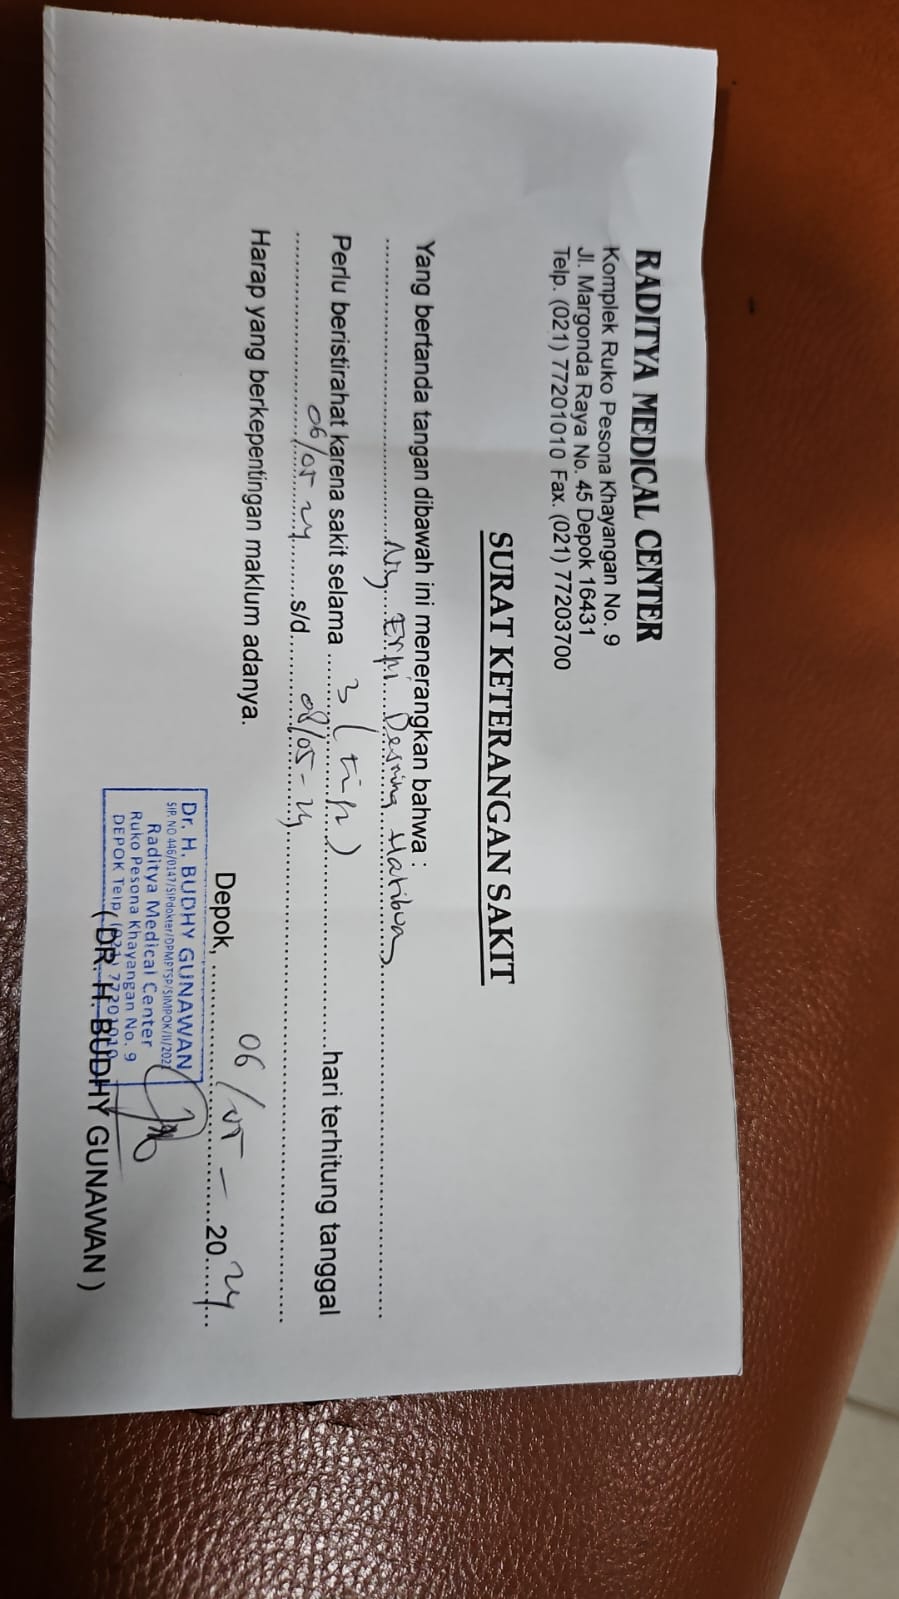 RADITYA MEDICAL CENTER
Komplek Ruko Pesona Khayangan No. 9
Jl. Margonda Raya No. 45 Depok 16431
Telp. (021) 77201010 Fax. (021) 77203700
SURAT KETERANGAN SAKIT
Yang bertanda tangan dibawah ini menerangkan bahwa :
Ny Erpi
Perlu beristirahat karena sakit selama 3 ( ) hari terhitung tanggal
06/05 24 s/d 08/05-24
Harap yang berkepentingan maklum adanya.
Depok, 06/05 - 2024
Dr. H. BUDHY GUNAWAN
SIP. NO 446/0147/SIPdokter/DPMPTSP/SIMPOK/II/2021
Raditya Medical Center
Ruko Pesona Khayangan No. 9
DEPOK Telp. (021) 77201010
( DR. H. BUDHY GUNAWAN )